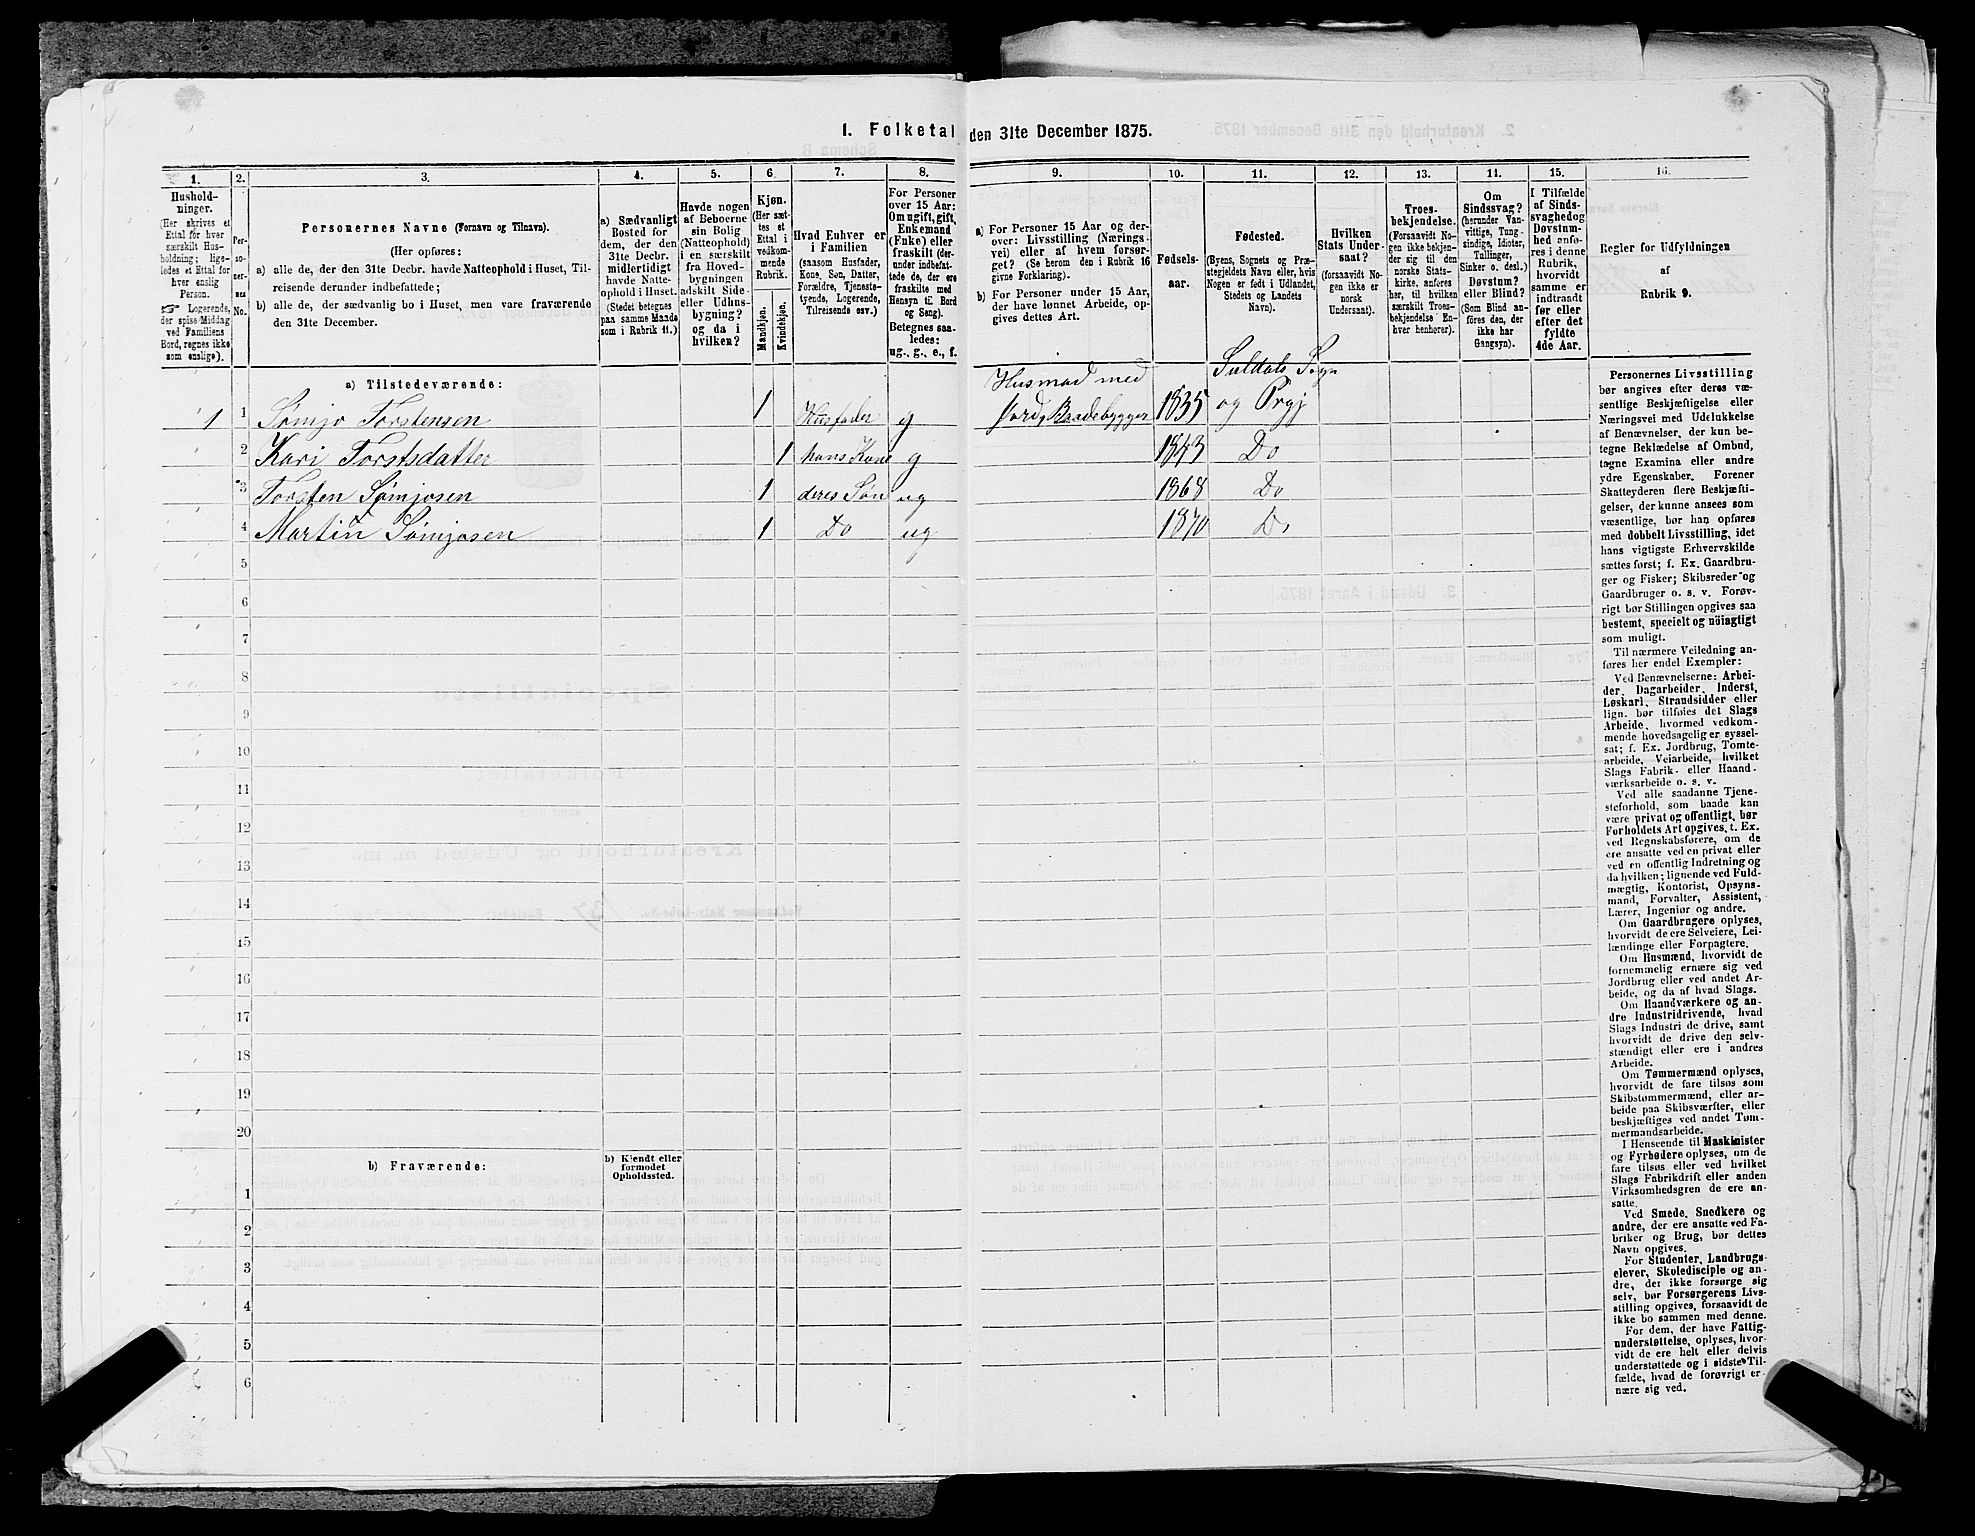 1. Folketal den 31te December 1875.
1. 2. 3. 4. 5. 6. 7. 8. 9. 10. 11. 12. 13. 11. 15. 16.
Hushold-
ninger.
(Her skrives et
Ettal for hver
særskilt Hus-
holdning; lige-
ledes et Ettal for
hver enslig
Person.
Logerende,
der spise Middag
ved Familiens
Bord, regnes ikke
som enslige).
Per-
so-
ner-
nes
No.
Personernes Navne (Fornavn og Tilnavn).
(Her opføres:
a) alle de, der den 31te Decbr. havde Natteophold i Huset, Til-
reisende derunder indbefattede;
b) alle de, der sædvanlig bo i Huset, men vare fraværende
den 31te December.
a) Sædvanligt
Bosted for
dem, der den
31te Decbr.
midlertidigt
havde Natte-
ophold i Huset.
(Stedet betegnes
paa samme Maade
som i Rubrik 11.)
Havde nogen
af Beboerne
sin Bolig
(Natteophold)
i en særskilt
fra Hoved-
bygningen
adskilt Side-
eller Udhus-
bygning?
og da i
hvilken?
Kjøn.
(Her sæt-
tes et
Ettal i
vedkom-
mende
Rubrik.
Mandkjøn.
Kvindekjøn.
Hvad Enhver er
i Familien
(saasom Husfader,
Kone, Søn, Datter,
Forældre, Tjeneste-
tyende, Logerende,
Tilreisende osv.)
For Personer
over 15 Aar:
Om ugift, gift,
Enkemand
(Enke) eller
fraskilt (der-
under indbefat-
tede de, der ere
fraskilte med
Hensyn til Bord
og Seng).
Betegnes saa-
ledes:
ug., g., e., f.
a) For Personer 15 Aar og der-
over: Livsstilling (Nærings-
vei) eller af hvem forsør-
get? (Se herom den i Rubrik 16
givne Forklaring).
b) For Personer under 15 Aar,
der have lønnet Arbeide, op-
gives dettes Art.
Fødsels-
aar.
Fødested.
(Byens, Sognets og Præ-
stegjeldets Navn eller, hvis
Nogen er født i Udlandet,
Stedets og Landets
Navn).
Hvilken
Stats Under-
saat?
(forsaavidt No-
gen ikke er
norsk
Undersaat).
Troes-
bekjendelse.
(Forsaavidt No-
gen ikke bekjen-
der sig til den
norske Stats-
kirke, anføres
her, til hvilken
særskilt Troes-
bekjendelse En-
hver henhører).
Om
Sindssvag?
(herunder Van-
vittige, Tung-
sindige, Idioter,
Tullinger,
Sinker o. desl.)
Døvstum?
eller Blind?
(Som Blind an-
føres den, der
ikke har
Gangsyn).
I Tilfælde
af Sinds-
svaghed og
Døvstum-
hed anfø-
res i denne
Rubrik,
hvorvidt
samme er
indtraadt
før eller
efter det
fyldte
4de Aar.
Regler for Udfyldningen
af
Rubrik 9.
a) Tilstedeværende:
Husmad med Suldals Sogn
1 1 Sømjo Torstensen 1 Husfader g Jord, Baadebygger 1835 og Prgj
2 Kari Torstsdatter 1 hans Kone g 1843 Do
3 Torsten Sømjosen 1 deres Søn ug 1868 Do
4 Martin Sømjosen 1 Do ug 1870 Do
5
6
7
8
9
10
11
12
13
14
15
16
17
18
19
20
b) Fraværende:
b) Kjendt eller
formodet
Opholdssted.
1
2
3
4
5
6
Personernes Livsstilling
bør angives efter deres væ-
sentlige Beskjæftigelse eller
Næringsvei med Udelukkelse
af Benævnelser, der kun be-
tegne Beklædelse af Ombud,
tagne Examina eller andre
ydre Egenskaber. Forener
Skatteyderen flere Beskjæfti-
gelser, der kunne ansees som
væsentlige, bør han opføres
med dobbelt Livsstilling, idet
hans vigtigste Erhvervskilde
sættes først; f. Ex. Gaardbru-
ger og Fisker; Skibsreder og
Gaardbruger o. s. v. Forøv-
rigt bør Stillingen opgives saa
bestemt, specielt og nöiagtigt
som muligt.
Til nærmere Veiledning an-
føres her endel Exempler:
Ved Benævnelserne: Arbei-
der, Dagarbeider, Inderst,
Løskarl, Strandsidder eller
lign. bør tilføies det Slags
Arbeide, hvormed vedkom-
mende hovedsagelig er syssel-
sat; f. Ex. Jordbrug, Tomte-
arbeide, Veiarbeide, hvilket
Slags Fabrik- eller Haand-
værksarbeide o. s. v.
Ved alle saadanne Tjene-
steforhold, som baade kan
være privat og offentligt, bør
Forholdets Art opgives, t. Ex.
ved Regnskabsførere, om de
ere ansatte ved en privat eller
ved en offentlig Indretning og
da hvilken; lignende ved Fuld-
mægtig, Kontorist, Opsyns-
mand, Forvalter, Assistent,
Lærer, Ingeniør og andre.
Om Gaardbrugere oplyses,
hvorvidt de ere Selveiere, Lei-
lændinge eller Forpagtere.
Om Husmænd, hvorvidt de
fornemmelig ernære sig ved
Jordbrug eller ved andet Ar-
beide, og da af hvad Slags.
Om Haandværkere og an-
dre Industridrivende, hvad
Slags Industri de drive, samt
hvorvidt de drive den selv-
stændigt eller ere i andres
Arbeide.
Om Tømmermænd oplyses,
hvorvidt de fare tilsøs som
Skibstømmermænd, eller ar-
beide paa Skibsværfter, eller
beskjæftiges ved andet Tøm-
mermandsarbeide.
I Henseende til Maskinister
og Fyrbødere oplyses, om de
fare tilsøs eller ved hvilket
Slags Fabrikdrift eller anden
Virksomhedsgren de ere an-
satte.
Ved Smede, Snedkere og
andre, der ere ansatte ved Fa-
briker og Brug, bør dettes
Navn opgives.
For Studenter, Landbrugs-
elever, Skoledisciple og an-
dre, der ikke forsørge sig
selv, bør Forsørgerens Livs-
stilling opgives, forsaavidt de
ikke bo sammen med denne.
For dem, der have Fattig-
understøttelse, oplyses, hvor-
vidt de ere helt eller delvis
understøttede og i sidste Til-
fælde, hvad de forøvrigt er-
nære sig ved.